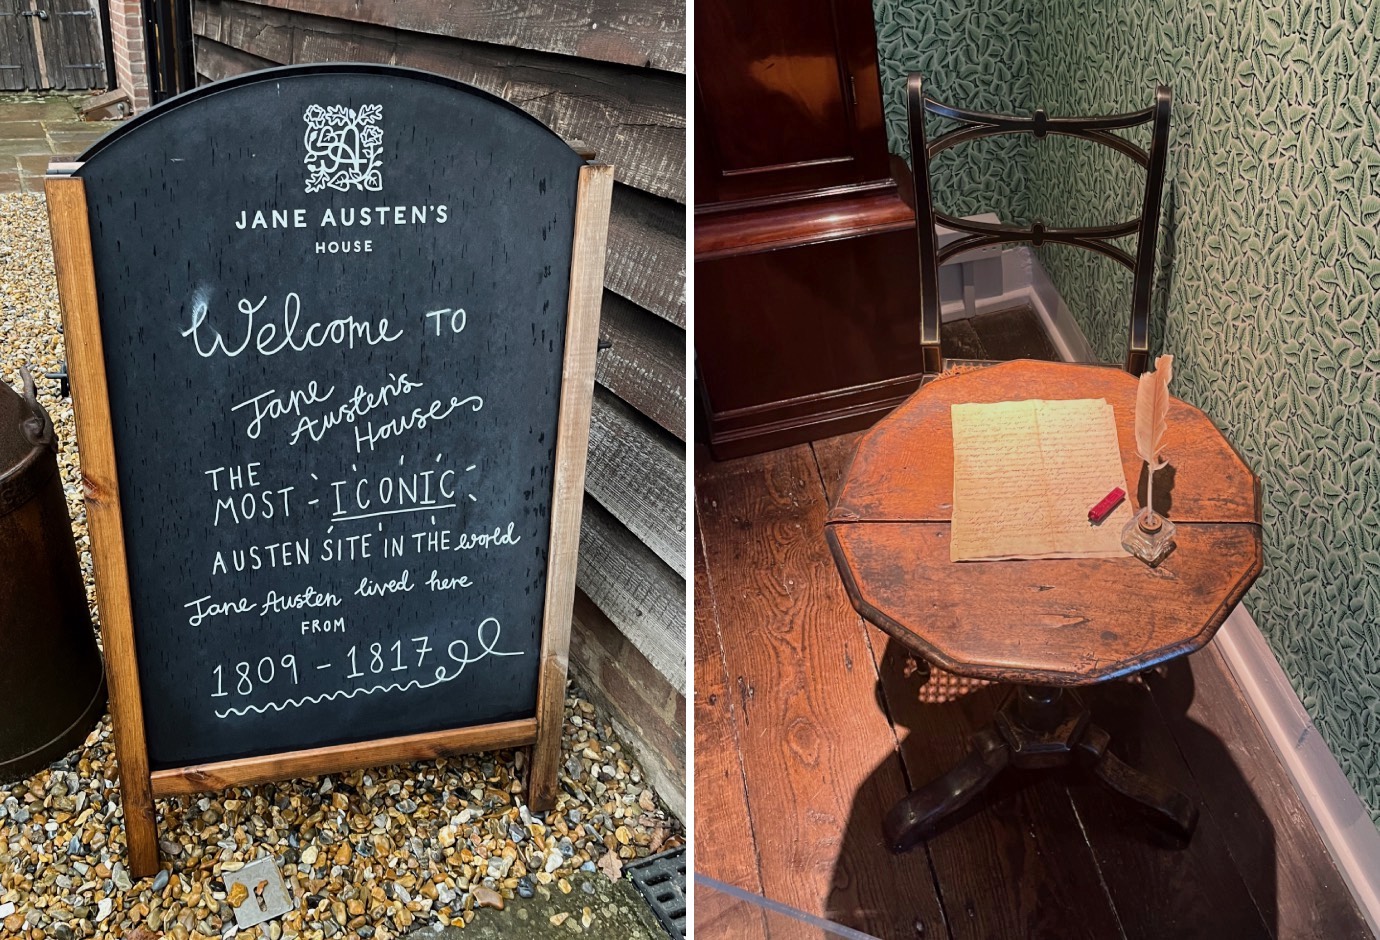 JANE AUSTEN'S
HOUSE
Welcome TO
Jane
Austen's
House
THE
MOST ICONIC
AUSTEN SITE IN THE world
Jane Austen lived here
FROM
1809 - 1817